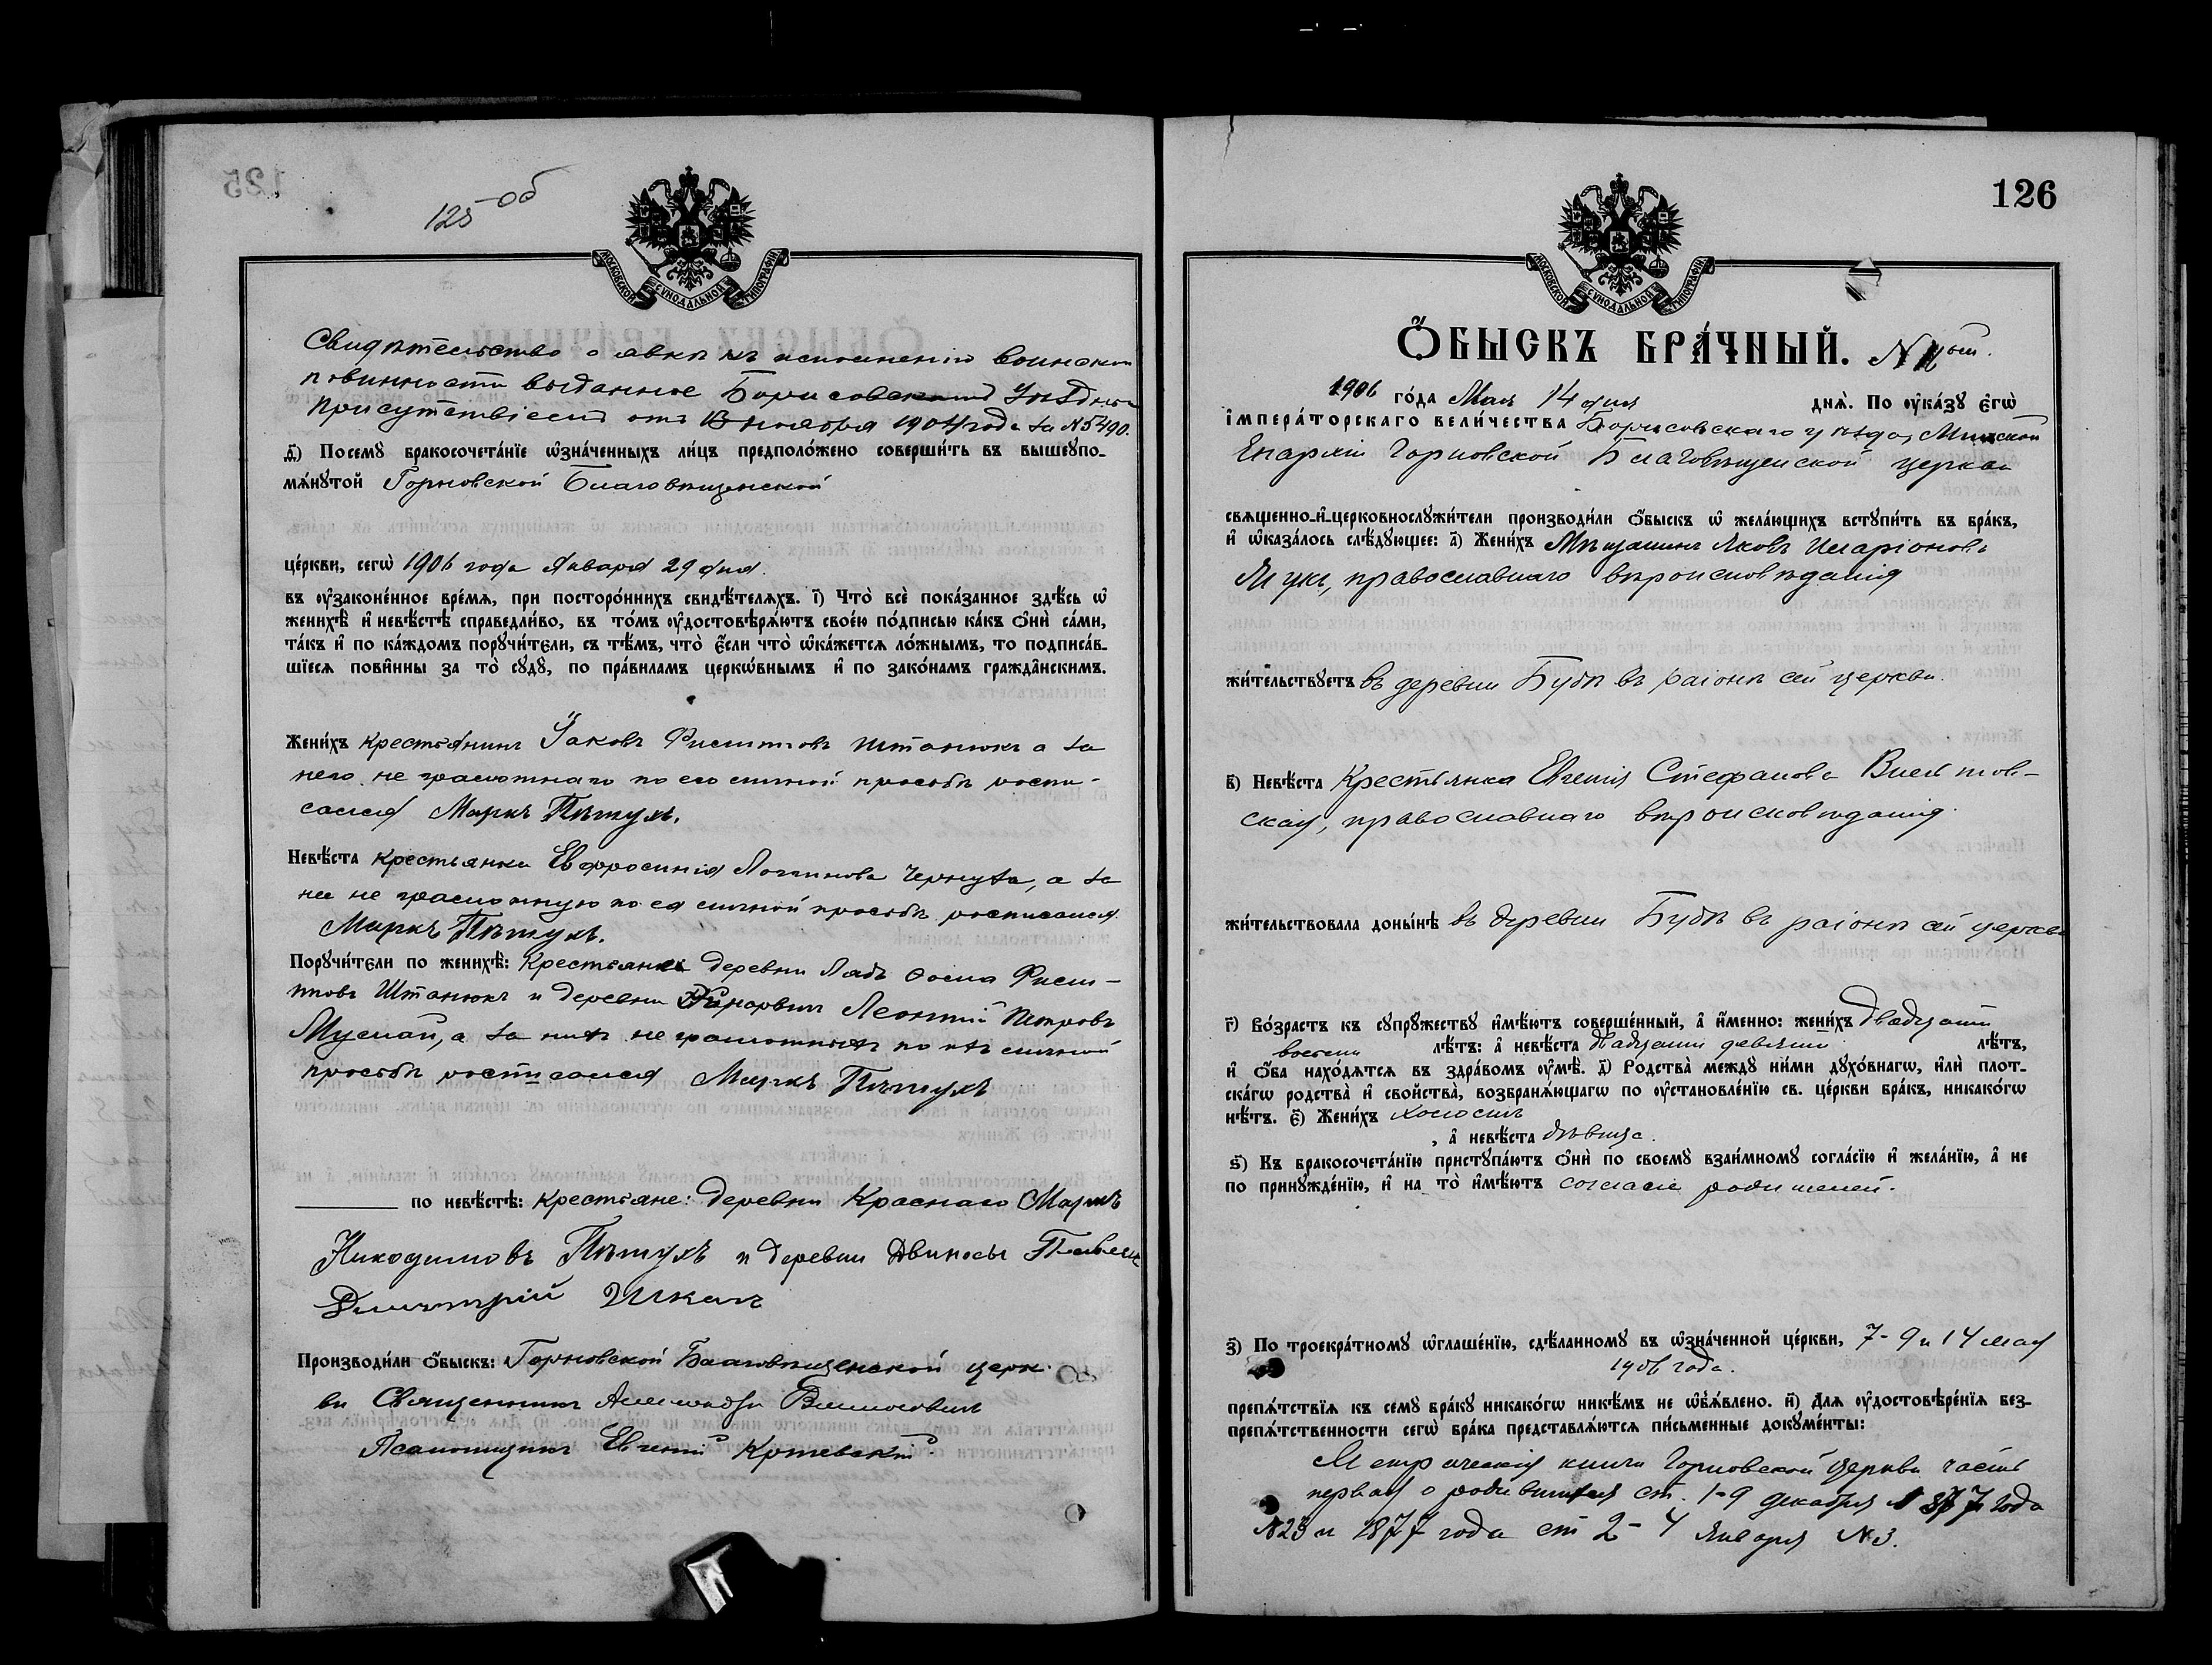 125
125 об
МОСКОВСКОЙ СѴНОДАЛЬНОЙ ТИПОГРАФІИ
Свидѣтельство о явкѣ къ исполненію воинской
повинности выданное Борисовскимъ Уѣзднымъ
Присутствіемъ отъ 13 ноября 1904 года за № 5490.
д҃) Посемꙋ бракосочета́нїе ѡ҆зна́ченныхъ ли́цъ предполо́жено соверши́ть въ вышеꙋпо-
мѧ́нꙋтой Горновской Благовѣщенской
це́ркви, сегѡ̀ 1906 года Января 29 дня.
въ ᲂу҆законе́нное вре́мѧ, при посторо́ннихъ свидѣ́телѧхъ. і҃) Что̀ всѐ пока́занное здѣ́сь ѡ҆
женихѣ̀ и҆ невѣ́стѣ справедли́во, въ то́мъ ᲂу҆достовѣрѧ́ютъ свое́ю по́дписью ка́къ ѻ҆нѝ са́ми,
та́къ и҆ по ка́ждомъ порꙋчи́тели, съ тѣ́мъ, что̀ є҆́сли что̀ ѡ҆ка́жется ло́жнымъ, то подписа́в-
шїеся пови́нны за то̀ сꙋдꙋ̀, по пра́виламъ церкѡ́внымъ и҆ по зако́намъ гражда́нскимъ.
Жени́хъ крестьянинъ Іаковъ Филиповъ Штанюкъ а за
него не грамотнаго по его личной просьбѣ роспи-
сался Маркъ Пѣтухъ.
Невѣ́ста крестьянка Евфросинія Логинова Чернуха, а за
нее не грамотную по ея личной просьбѣ росписался
Маркъ Пѣтухъ.
Порꙋчи́тели по женихѣ̀: Крестьяне деревни Лядъ Ѳома Фили-
повъ Штанюкъ и деревни Леонтій Петровъ
а за нихъ не грамотныхъ по ихъ личной
просьбѣ росписался Маркъ Пѣтухъ
по невѣ́стѣ: крестьяне: деревни Краснаго Маркъ
Никодимовъ Пѣтухъ и деревни Двиносы
Димитрій
Производи́ли ѻ҆́быскъ: Горновской Благовѣщенской церк-
ви Священникъ Александръ
Псаломщикъ Евгеній
126
МОСКОВСКОЙ СѴНОДАЛЬНОЙ ТИПОГРАФІИ
Ѻ҆́БЫСКЪ БРА́ЧНЫЙ. №
1906 го́да Мая 14 дня днѧ̀. По ᲂу҆ка́зꙋ є҆гѡ̀
і҆мпера́торскаго вели́чества Борисовскаго уѣзда, Минской
Епархіи Горновской Благовѣщенской церкви
свѧщенно-и҆-церковнослꙋжи́тели производи́ли ѻ҆́быскъ ѡ҆ жела́ющихъ встꙋпи́ть въ бра́къ,
и҆ ѡ҆каза́лось слѣ́дꙋющее: а҃) Жени́хъ Мѣщанинъ Яковъ Иларіоновъ
православнаго вѣроисповѣданія
жи́тельствꙋетъ въ деревни Будѣ въ раіонѣ сей церкви.
в҃) Невѣ́ста Крестьянка Евгенія Стефанова
ская, православнаго вѣроисповѣданія.
жи́тельствовала доны́нѣ въ деревни Будѣ въ раіонѣ сей церкви
г҃) Во́зрастъ къ сꙋпрꙋ́жествꙋ и҆мѣ́ютъ соверше́нный, а҆ и҆́менно: жени́хъ двадцати
восьми лѣ́тъ: а҆ невѣ́ста двадцати девяти лѣ́тъ,
и҆ ѻ҆́ба нахо́дѧтся въ здра́вомъ ᲂу҆мѣ̀. д҃) Родства̀ междꙋ ни́ми дꙋхо́внагѡ, и҆лѝ плот-
ска́гѡ родства̀ и҆ сво́йства, возбранѧ́ющагѡ по ᲂу҆становле́нїю св. це́ркви бра́къ, никако́гѡ
нѣ́тъ. є҃) Жени́хъ холостъ
, а҆ невѣ́ста дѣвица.
ѕ҃) Къ бракосочета́нїю пристꙋпа́ютъ ѻ҆нѝ по своемꙋ̀ взаи́мномꙋ согла́сїю и҆ жела́нїю, а҆ не
по принꙋжде́нїю, и҆ на то̀ и҆мѣ́ютъ согласіе родителей.
з҃) По троекра́тномꙋ ѡ҆глаше́нїю, сдѣ́ланномꙋ въ ѡ҆зна́ченной це́ркви, 7- 9 и 14 мая
1906 года.
препѧ́тствїя къ семꙋ̀ бра́кꙋ никако́гѡ никѣ́мъ не ѡ҆б̾ѧ́влено. и҃) Длѧ ᲂу҆достовѣре́нїѧ без-
препѧ́тственности сегѡ̀ бра́ка представлѧ́ются пи́сьменные докꙋме́нты:
Метрическія книги Горновской церкви часть
первая о родившихся ст. 1-9 декабря 1877 года
№ 23 и 1877 года ст 2 - 4 Января № 3.